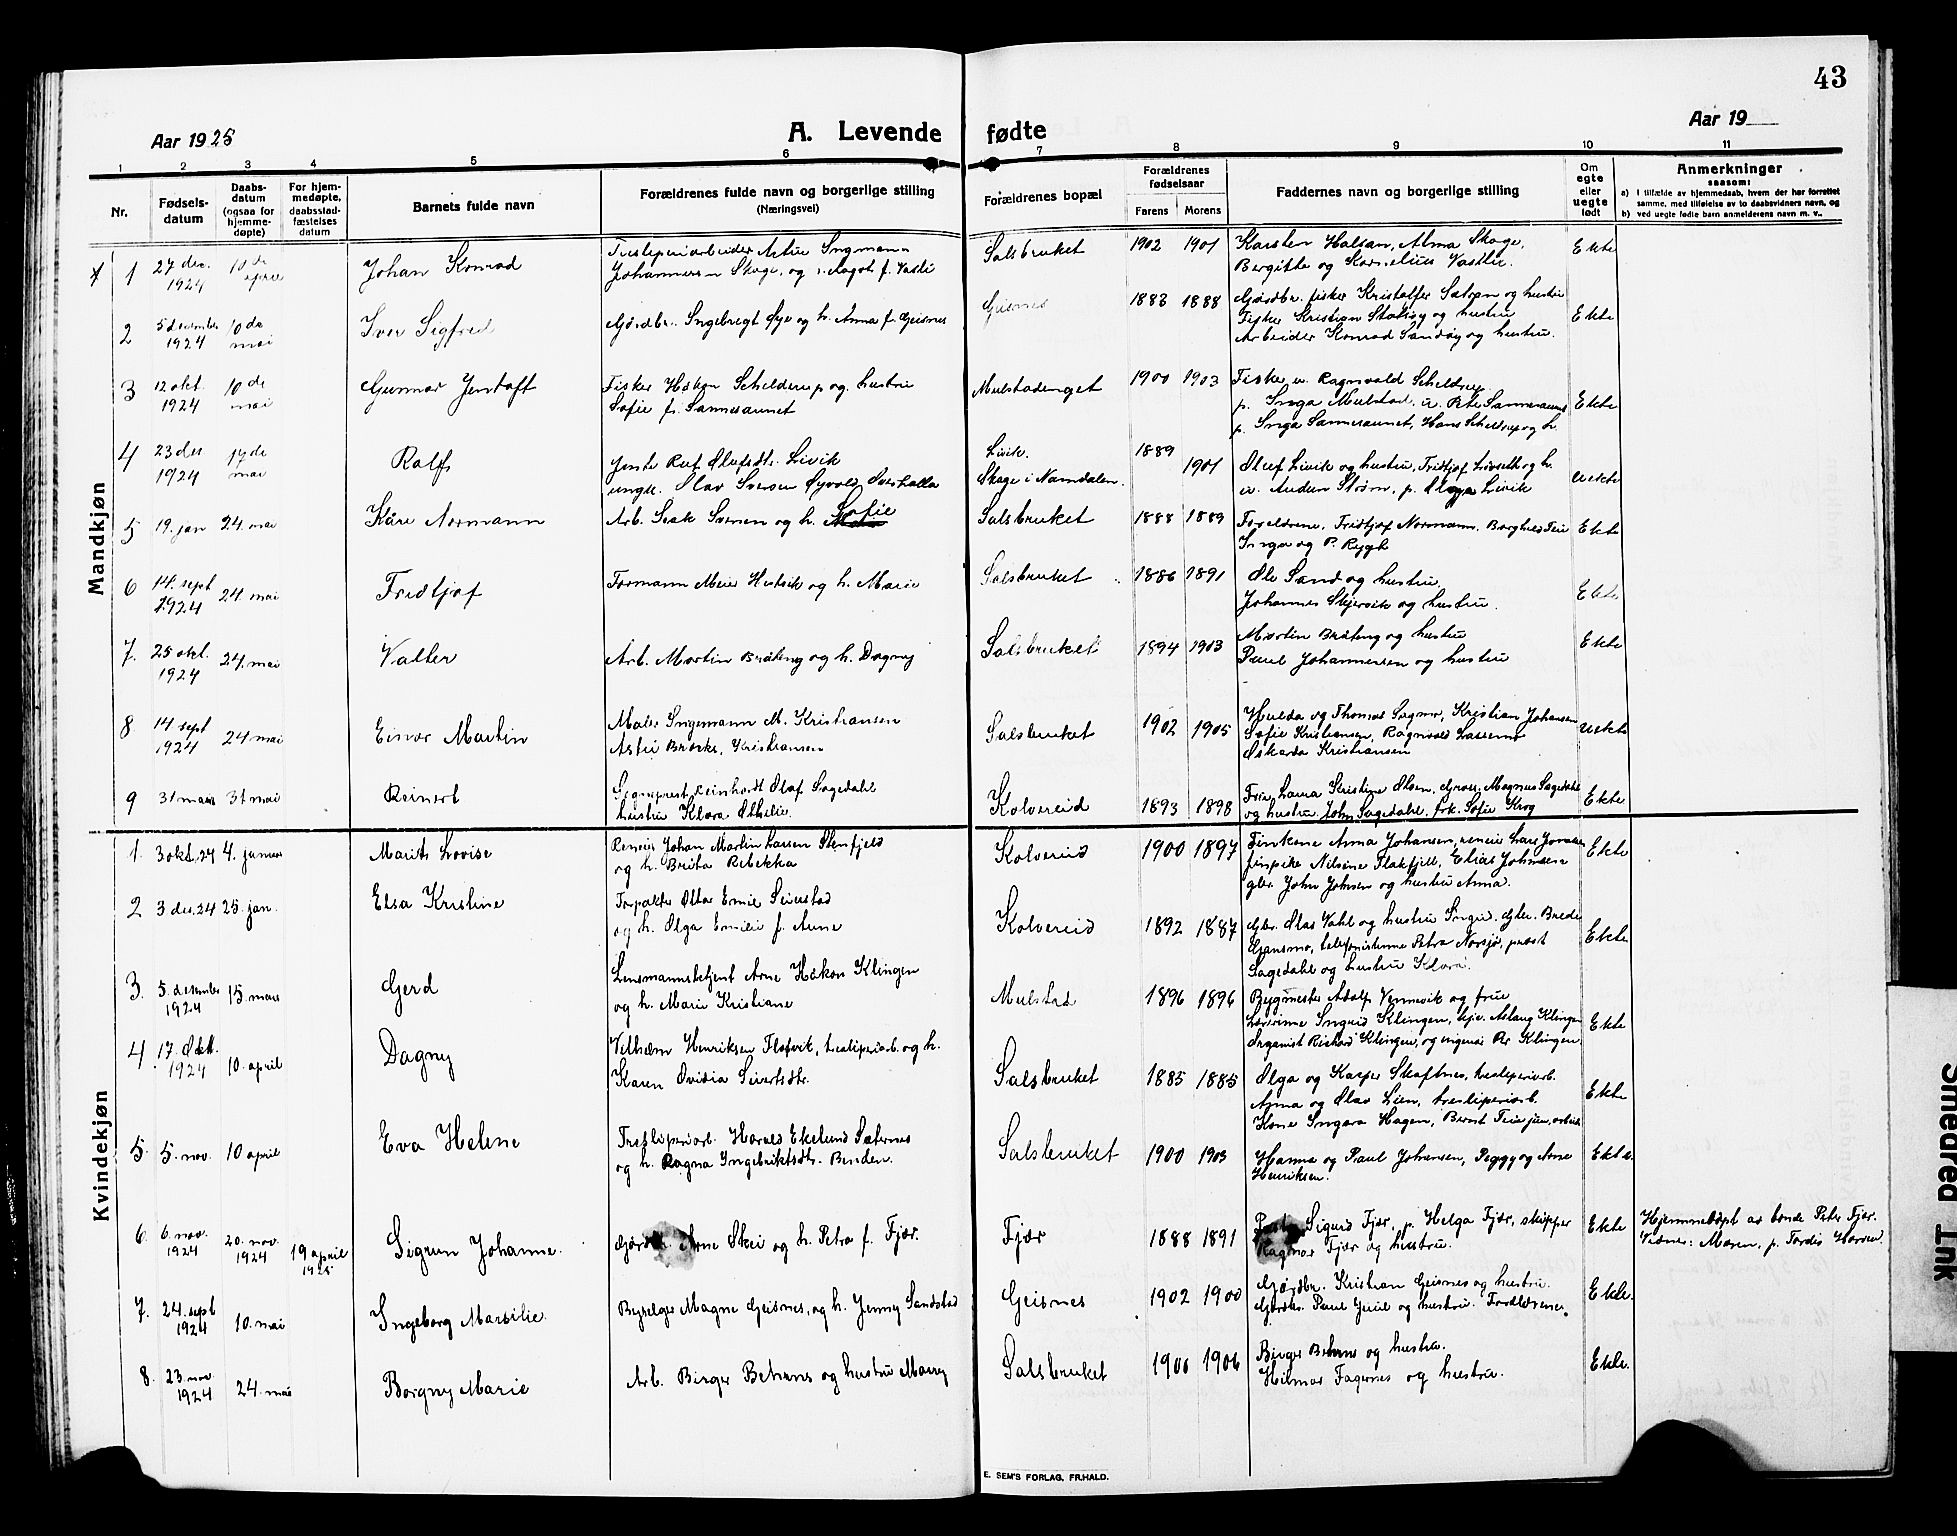 43
Aar 1925
A. Levende fødte
Aar 19
1 2 3 4 5 6 7 8 9 10 11
Nr.
Fødsels-
datum
Daabs-
datum
(ogsaa for
hjemme-
døpte)
For hjem-
medøpte,
daabsstad-
fæstelses
datum
Barnets fulde navn
Forældrenes fulde navn og borgerlige stilling
(Næringsvei)
Forældrenes bopæl
Forældrenes
fødselsaar
Farens Morens
Faddernes navn og borgerlige stilling
Om
egte
eller
uegte
født
Anmerkninger
saasom:
a) I tilfælde av hjemmedaab, hvem der har forrettet
samme, med tilføielse av to daabsvidners navn, og
b) ved uegte fødte barn anmelderens navn m. v..
Mandkjøn
1 27 des. 1924 10 de april Johan Konrad
Johannesen Skage, og f. Vastli
Salsbruket 1902 1901
Karsten Halsan, Alma Skage,
Bergitte og Kornelius Vastli.
Ekte
2 5 desember 1924 10 de mai Iver Sigfred
Gårdbr. Ingebregt Øye og h. Anna f. Geisnes
Geisnes 1883 1888
Gårdbr. fisker Kristoffer Sætran og hustru
Fisker Kristian Skotsøy og hustru
Arbeider Konrad Sandøy og hustru.
Ekte
3 12 okt. 1924 10 de mai Gunnar Jentoft
Fisker Håkon Schelderup og hustru
Sofie f. Sannesaunet
Mulstadenget 1900 1903
Fisker u. Ragnvald Scheldrup
p. Inga Mulstad, u. Sannesaunet
p. Inga Sannesaunet, Hans Scheldrup og h.
Ekte
4 23 des 1924 17 de mai Ralf
Jente Rut Olufsdtr. Livik
ungk. Olav Iversen Øyvold Overhalla
Livik.
Skage i Namdalen.
1889
1901
Oluf Livik og hustru, Fridtjof Livseth og h.
u. Anden Strøm, p. Olga Livik
Uekte
5 19. jan 24. mai Kåre Normann
Arb. Isak Svensen og h. Sofie
Salsbruket 1888 1889
Foreldrene, Fridtjof Normann, Borghild Teie
Inga og P. Rygh
Ekte
6 14. sept 1924 24. mai Fridtjof
Formann Meier Hestvik og h. Marie
Salsbruket 1886 1891
Ole Sand og hustru.
Johannes Skjervik og hustru.
Ekte
7. 25 okt. 1924 24. mai Valter
Arb. Martin Bråteng og h. Dagny
Salsbruket 1894 1903
Martin Bråteng og hustru
Paul Johannessen og hustru
Ekte
8 14 sept 1924 24 mai Einar Martin
Maler Ingemann M. Kristiansen
Astri Brørks, Kristiansen
Salsbruket 1902 1905
Hulda og Thomas Sagmo, Kristian Johansen
Sofie Kristiansen, Ragnvald Lassemo
Oskarda Kristiansen
uekte
9 31 mars 31 mai Reinert
Sogneprest Reinhardt Olaf Sagedahl
hustru Klara Othelie.
Kolvereid 1893 1898
Fru Laura Kristine Olsen, Magnus Sagedahl
og hustru. John Sagedahl, frk. Sofie Krog
Ekte
Kvindekjøn
1. 3 okt. 24 4. januar Marith Lovise
Reneier Johan Martin Larsen Stenfjeld
og h. Brita Rebekka
Kolvereid 1900 1897
Finkone Anna Johansen, reneier Lars Jonassen
finpike Nilsine Flakfjell, Elias Johnsen
gbr. John Johnsen og hustru Anna.
Ekte
2 3 des. 24 25. jan. Elsa Kristine
Forpakter Ottar Emil Seierstad
og h. Olga Emilie f. Aune
Kolvereid 1892 1887
Gbr. Olas Vahl og hustru Ingrid. Gbr. Brede
Gansmo, telefonistinne Petra Norsjø, prest
Sagedahl og hustru Klara.
Ekte
3. 5. desember 1924 15. mars Gerd
Lensmannsbetjent Arne Håkon Klingen
og h. Marie Kristiane
Mulstad 1896 1896
Bygmester Adolf Vennevik og frue
Lærerinne Ingrid Klingen, hjv. Aslaug Klingen
Organist Rickard Klingen, og ingeniør Per Klingen
Ekte
4 17. Okt. 1924 10. april Dagny
Vilhelm Henriksen Flotvik, tresliperiarb. og h.
Karen Ovidia Sivertsdtr.
Salsbruket 1885 1885
Olga og Kasper Skaftnes, tresliperiarb.
Anna og Olav Lien, tresliperiarb.
Kone Ingara Hagen, Bernt Teie jun, arbeid
Ekte
5. 5. nov. 10 april Eva Helene
Tresliperiarb. Harald Ekelund Sæternes
og h. Ragna Ingebriktsdtr. Binden.
Salsbruket 1900 1903
Hanna og Paul Johansen, Peggy og Arne
Henriksen.
Ekte.
6. 6. nov. 1924 20. nov. 1924 19 april 1925 Sigrun Johanne.
Arne Skei og h. Petra f. Fjær.
Fjær 1888 1891
Sigurd Fjær, p. Helga Fjær, skipper
Ragnar Fjær og hustru.
Ekte
Hjemmedøpt av bonde Peter Fjær.
Vidner: Maren, p. Tordis Hansen.
7. 24. sept 1924 10. mai Ingeborg Marsilie.
Byselger Magne Geisnes, og h. Jenny Sandstad
Geisnes 1902 1900
Gårdbr. Kristian Geisnes og hustru.
Gårdbr. Paul Juul og hustru. Foreldrene.
Ekte.
8. 23. nov 1924 24. mai Borgny Marie
Arb. Birger Behrns og hustru Marry
Salsbruket 1900 1906
Birger Behrns og hustru.
Hilmar Fagernes og hustru.
Ekte.
E. SEM'S FORLAG, FR.HALD.
Smedrød Ink